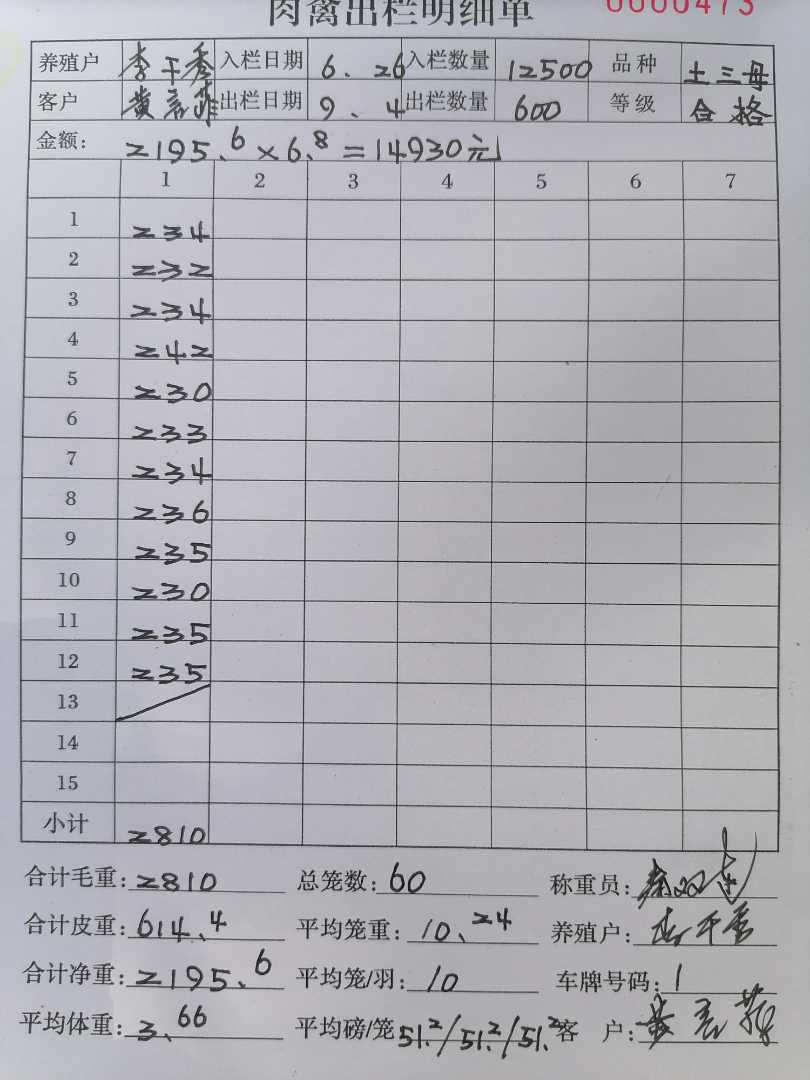 肉禽出栏明细单 0000473
养殖户 李干秀 入栏日期 6.26 入栏数量 12500 品种 土三母
客户 黄 出栏日期 9.4 出栏数量 600 等级 合格
金额: 2195.6×6.8=14930元
1 2 3 4 5 6 7
1 234
2 232
3 234
4 242
5 230
6 233
7 234
8 236
9 235
10 230
11 235
12 235
13
14
15
小计 2810
合计毛重: 2810 总笼数: 60 称重员:
合计皮重: 614.4 平均笼重: 10.24 养殖户: 李干秀
合计净重: 2195.6 平均笼/羽: 10 车牌号码: 1
平均体重: 3.66 平均磅/笼 51.2/51.2/51.2 客 户: 黄